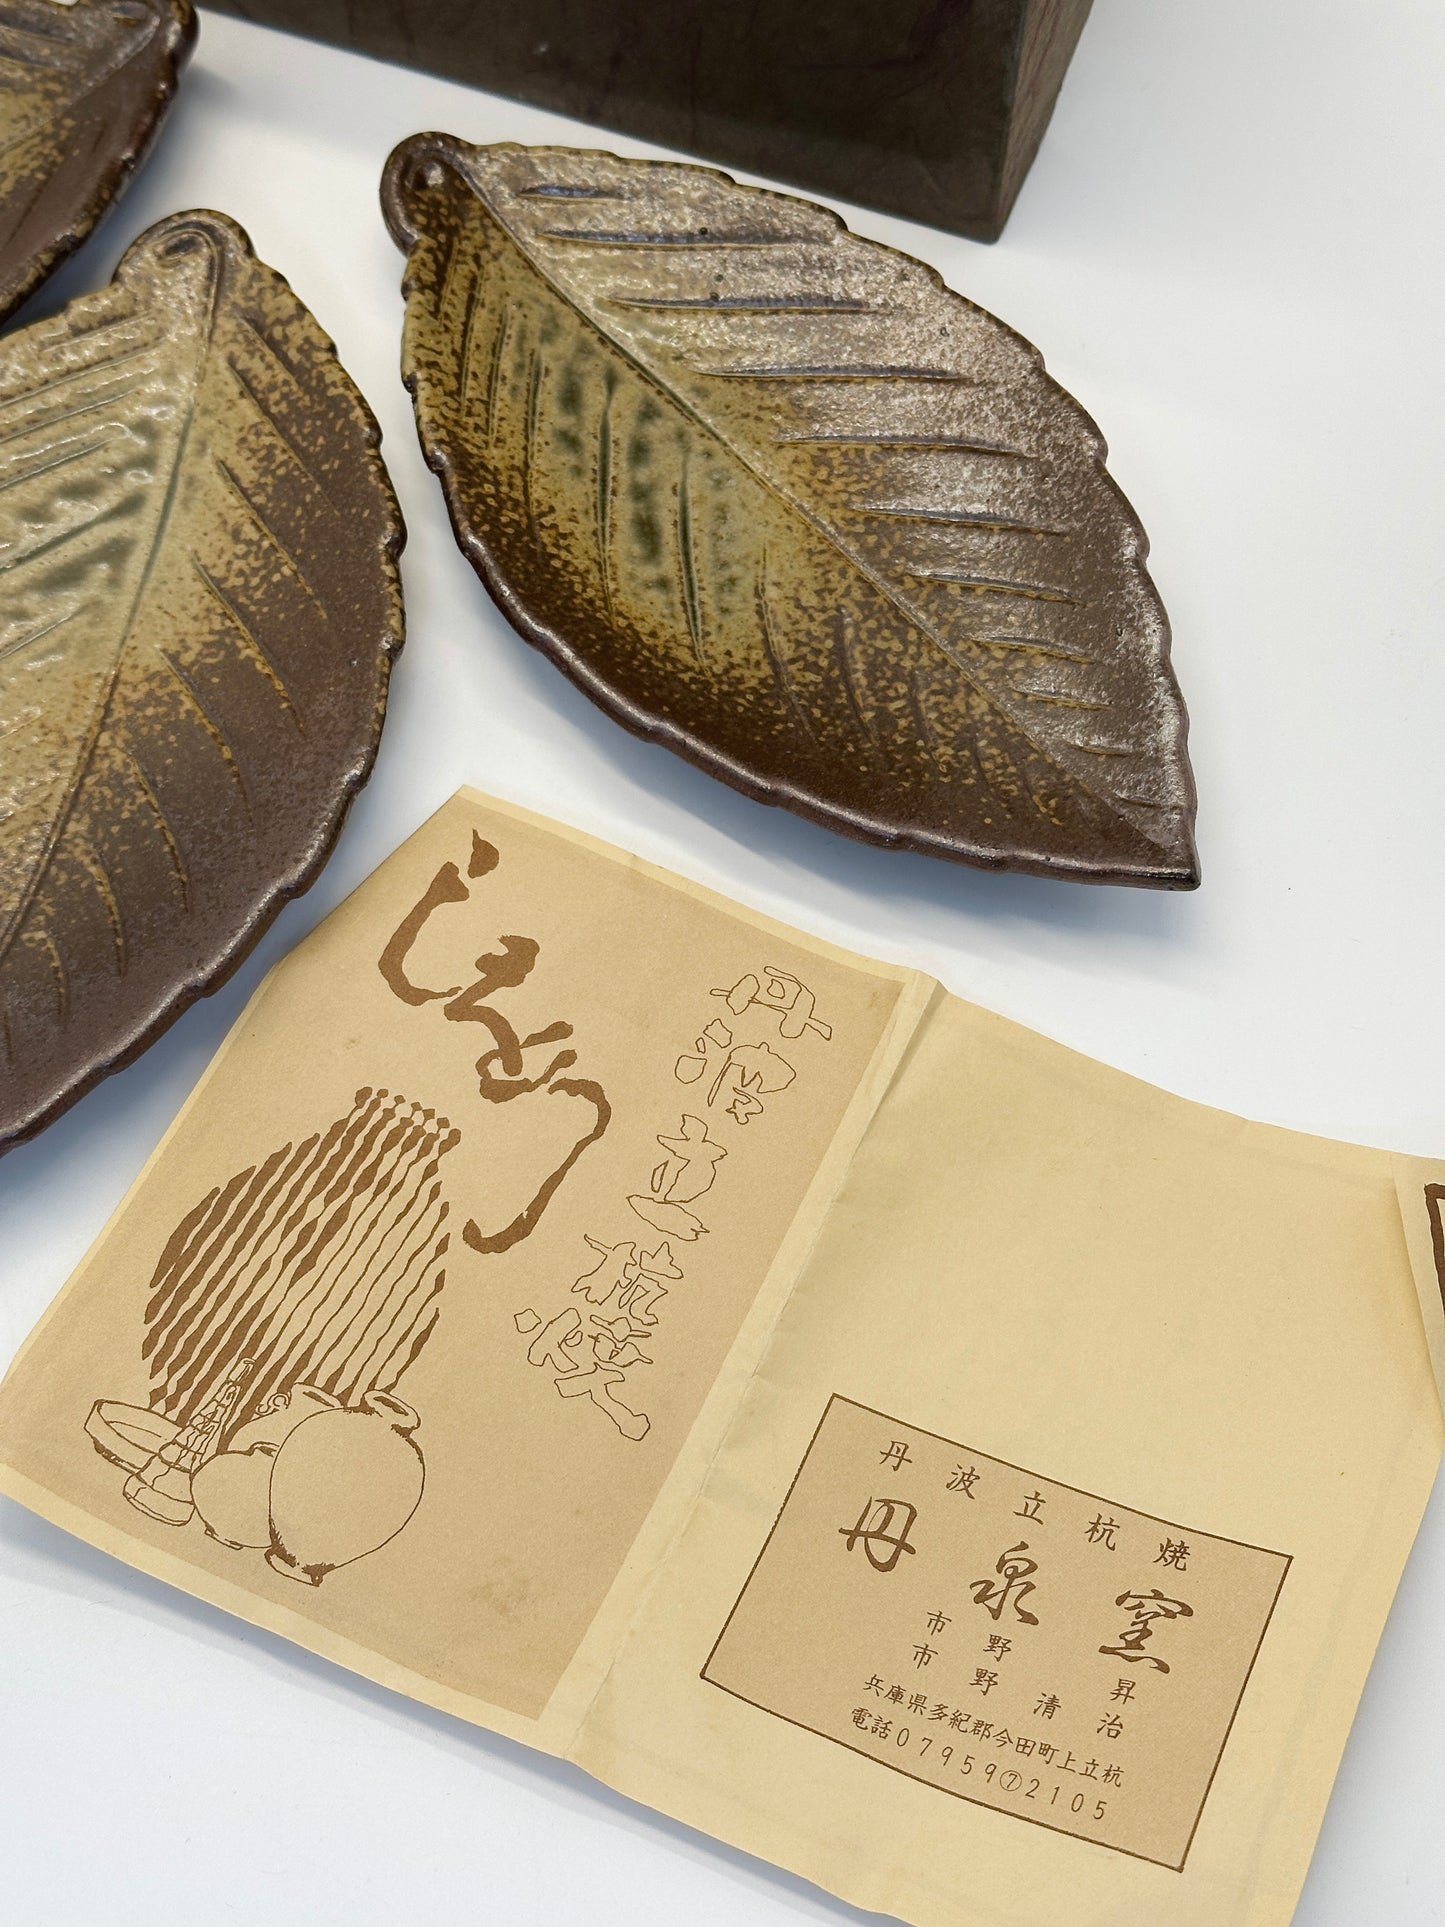 丹波立杭焼
しんとう
丹波立杭焼
丹泉窯
市野 昇
市野清治
兵庫県多紀郡今田町上立杭
電話07959⑦2105